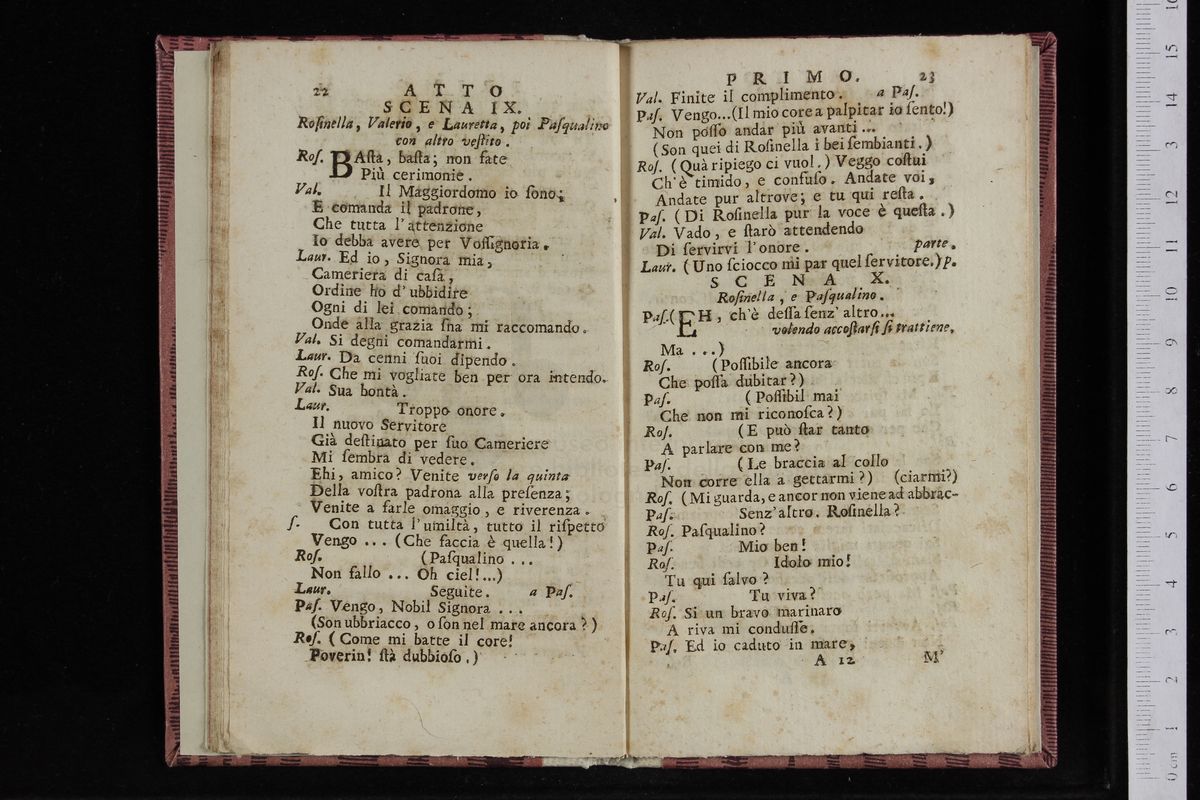 22 ATTO
SCENA IX.
Roſinella, Valerio, e Lauretta, poi Paſqualino
con altro veſtito.
Roſ. BAſta, baſta; non fate
Più cerimonie.
Val. Il Maggiordomo io ſono;
E comanda il padrone,
Che tutta l'attenzione
Io debba avere per Voſſignoria.
Laur. Ed io, Signora mia,
Cameriera di caſa,
Ordine ho d'ubbidire
Ogni di lei comando;
Onde alla grazia ſna mi raccomando.
Val. Si degni comandarmi.
Laur. Da cenni ſuoi dipendo.
Roſ. Che mi vogliate ben per ora intendo.
Val. Sua bontà.
Laur. Troppo onore.
Il nuovo Servitore
Già deſtinato per ſuo Cameriere
Mi ſembra di vedere.
Ehi, amico? Venite verſo la quinta
Della voſtra padrona alla preſenza;
Venite a farle omaggio, e riverenza.
ſ. Con tutta l'umiltà, tutto il riſpetto
Vengo ... (Che faccia è quella!)
Roſ. (Paſqualino ...
Non fallo ... Oh ciel!...)
Laur. Seguite. a Paſ.
Paſ. Vengo, Nobil Signora ...
(Son ubbriacco, o ſon nel mare ancora?)
Roſ. (Come mi batte il core!
Poverin! ſtà dubbioſo.)
PRIMO. 23
Val. Finite il complimento. a Paſ.
Paſ. Vengo...(Il mio core a palpitar io ſento!)
Non poſſo andar più avanti ...
(Son quei di Roſinella i bei ſembianti.)
Roſ. (Quà ripiego ci vuol.) Veggo coſtui
Ch'è timido, e confuſo. Andate voi,
Andate pur altrove; e tu qui reſta.
Paſ. (Di Roſinella pur la voce è queſta.)
Val. Vado, e ſtarò attendendo
Di ſervirvi l'onore. parte.
Laur. (Uno ſciocco mi par quel ſervitore.) p.
SCENA X.
Roſinella, e Paſqualino.
Paſ. (EH, ch'è deſſa ſenz'altro...
volendo accoſtarſi ſi trattiene.
Ma ...)
Roſ. (Poſſibile ancora
Che poſſa dubitar?)
Paſ. (Poſſibil mai
Che non mi riconoſca?)
Roſ. (E può ſtar tanto
A parlare con me?
Paſ. (Le braccia al collo
Non corre ella a gettarmi?) (ciarmi?)
Roſ. (Mi guarda, e ancor non viene ad abbrac-
Paſ. Senz'altro. Roſinella?
Roſ. Paſqualino?
Paſ. Mio ben!
Roſ. Idolo mio!
Tu qui ſalvo?
Paſ. Tu viva?
Roſ. Si un bravo marinaro
A riva mi conduſſe.
Paſ. Ed io caduto in mare,
A 12 M'